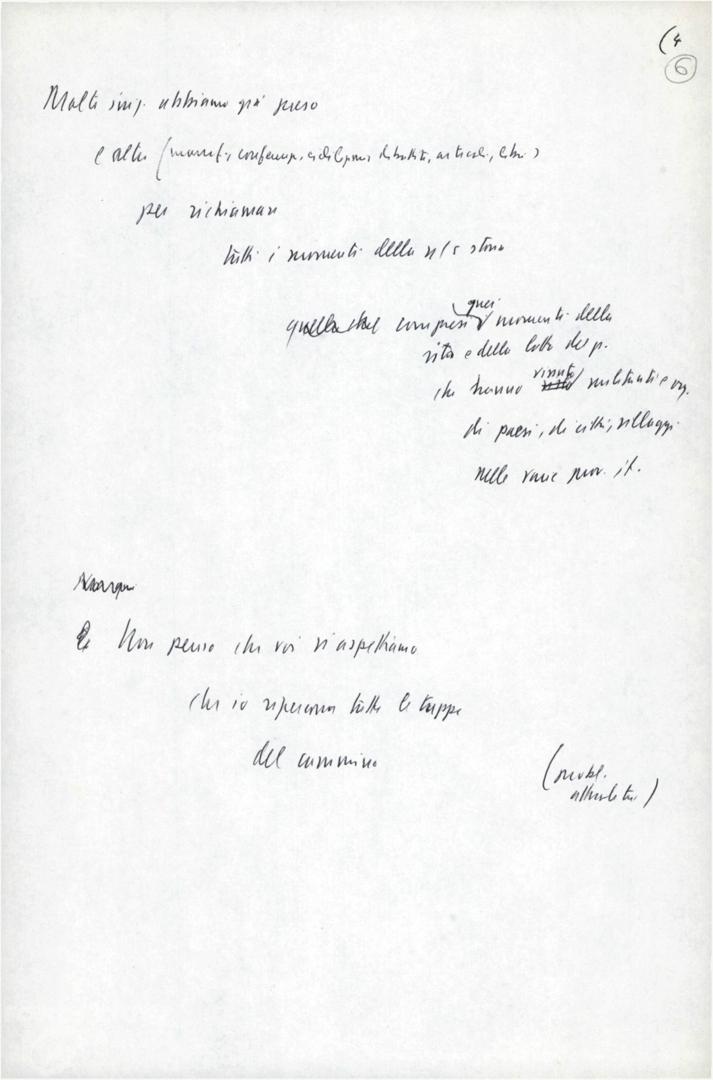 (4
6
Molte iniz. abbiamo già preso
e altre (manif., conferenze, dibattiti, articoli, libri)
per richiamare
tutti i momenti della n/s storia
compresi quei momenti della
vita e della lotta del p.
che hanno vissuto militanti e org.
di paesi, di città, villaggi
nelle varie prov. it.
Non penso che voi vi aspettiamo
che io ripercorra tutte le tappe
del cammino
(probl.